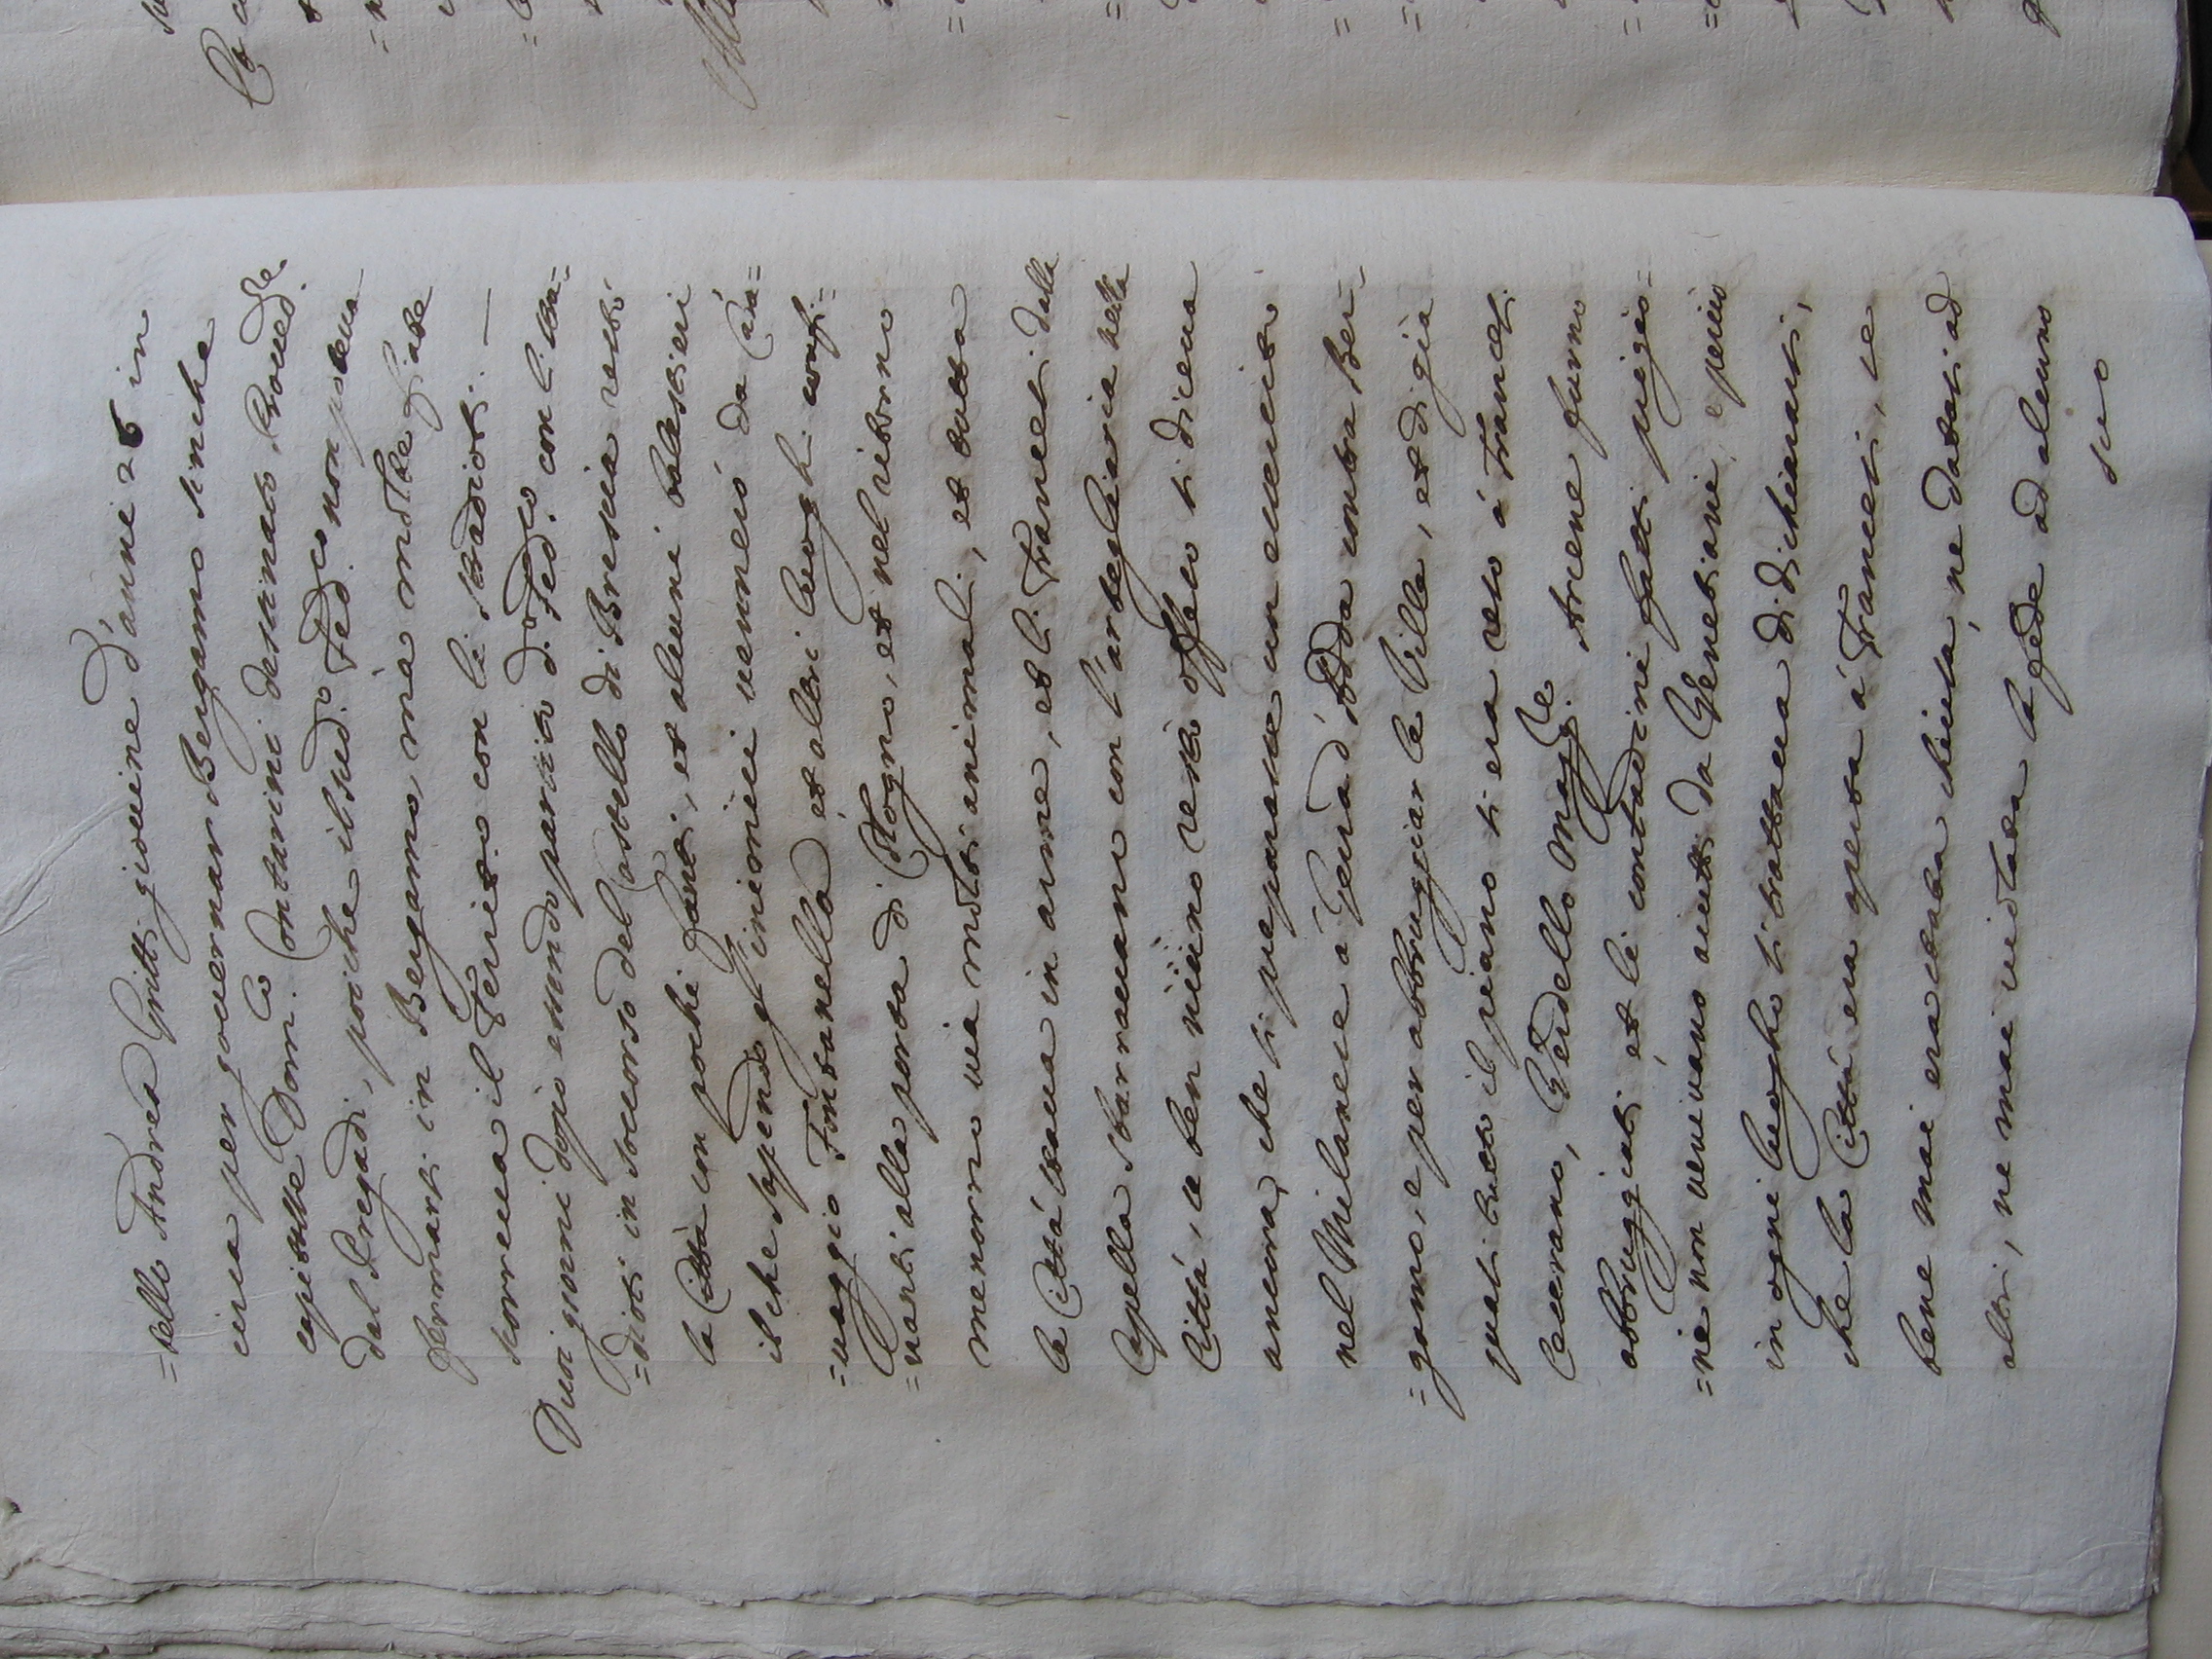 =tello Andrea Gritti giovine d'anni 26 in
circa per governar Bergamo sinche
capitasse Dom.co Contarini destinato Proved.re
dal Pregadi, poiche il sud.o Fed.co non poteva
fermarsi in Bergamo, mà molte fiate
scorreva il Territ.o con li stradioti. —
Duoi giorni dopo essendo partito d.o Fed.co con li stra=
=dioti in soccorso del Castello di Brescia restò
la Città con pochi fanti, et alcuni balestrieri
il che sapendo gl'inimici vennero da Cara=
=vaggio Fontanella, et altri luoghi confi=
=nanti alla porta di Cologno, et nel ritorno
menorno via molti animali, et tutta
la Città stava in arme, et li Francesi dalla
Capella sbarravano con l'arteglieria nella
Città, e ben niuno restò offeso si diceva
ancora, che si preparava un esercito
nel Milanese a Gerad'Adda contra Ber=
=gamo, e per abbruggiar le Ville, et di già
quasi tutto il piano si era reso à Francesi.
Coverano, Verdello Magg.re Arcene furno
abbruggiati, et li contadini fatti prigio=
=ni non venivano aiuti da Venetiani, e perciò
in ogni luogho si trattava di dichiararsi,
che la Città era aperta à Francesi, se
bene mai era stata chiusa, ne datasi ad
altri, ne mai violata la fede ad alcuno
suo